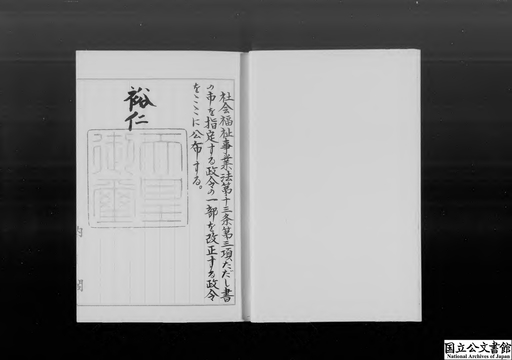 社会福祉事業法第十三条第三項ただし書
の市を指定する政令の一部を改正する政令
をここに公布する。
裕仁
天皇御璽
内閣
国立公文書館
National Archives of Japan